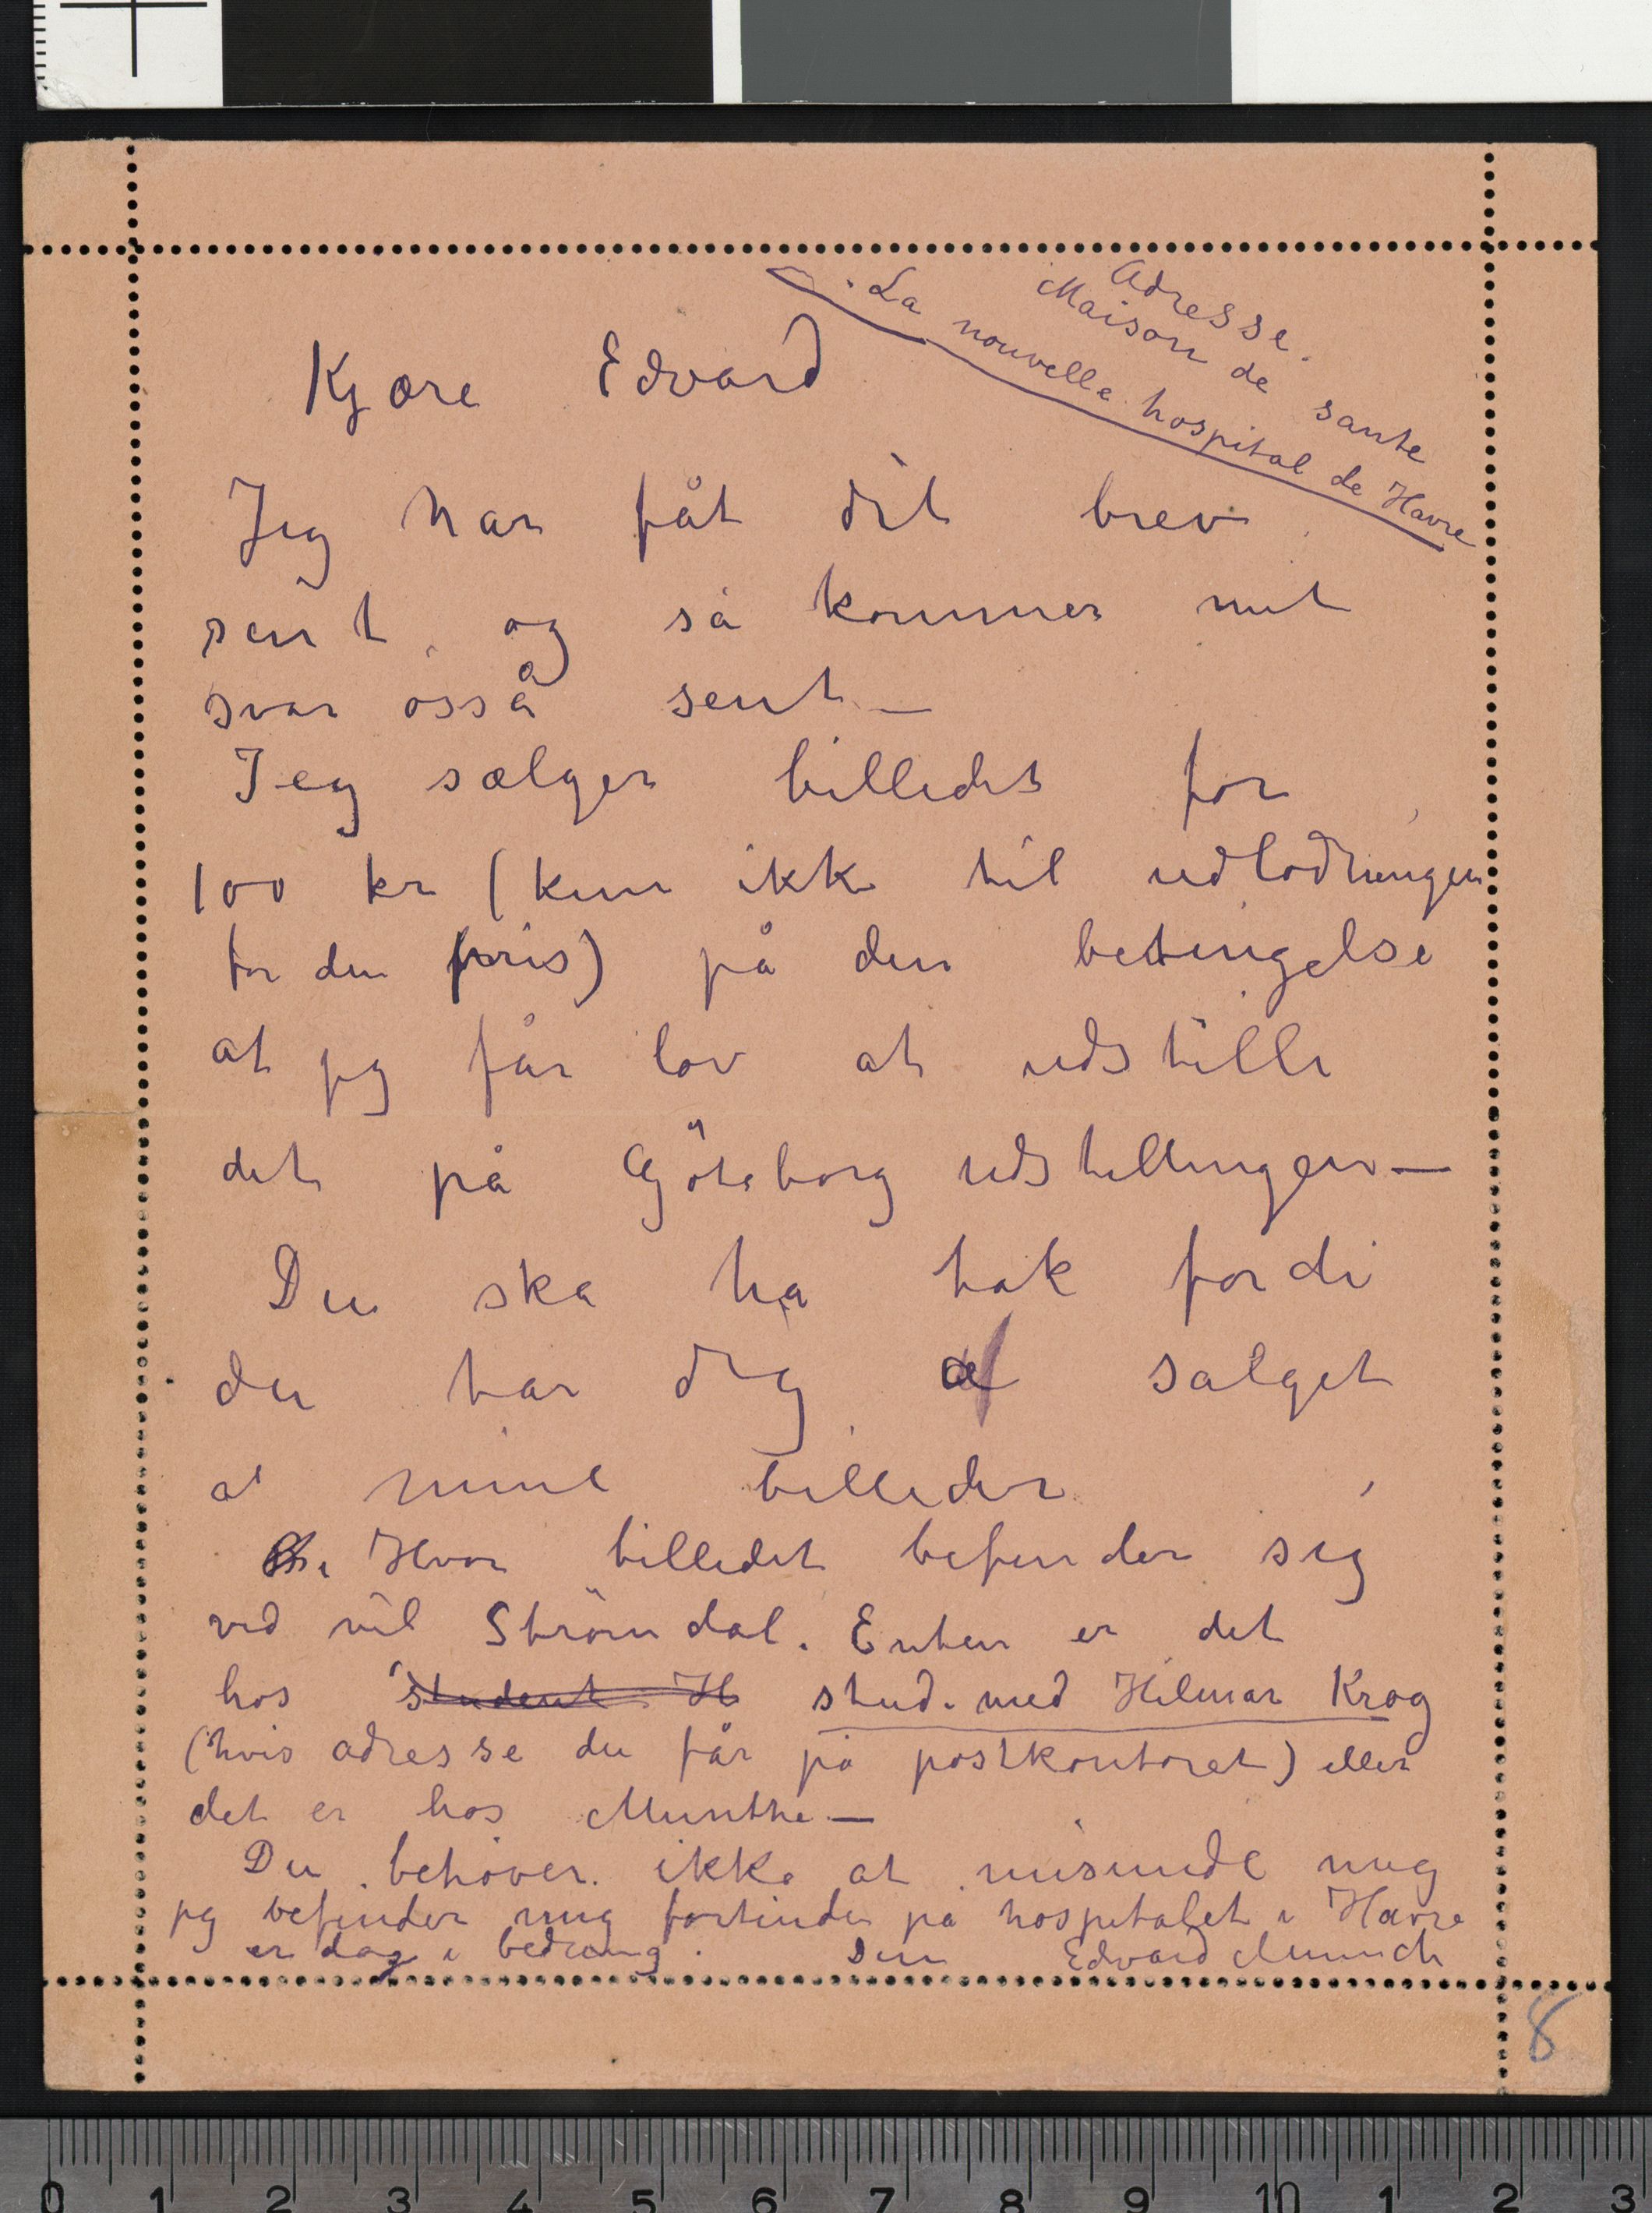 Adresse.
Maison de sante
La nouvelle hospital de Havre
Kjære Edvard
Jeg har fåt dit brev
sent og så kommer mit
svar osså sent –
Jeg sælger billedet for
100 kr (kun ikke til udlodningen
for den pris) på den betingelse
at jeg får lov at udstille
det på Göteborg udstillingen –
Du ska ha tak fordi
du tar dig af salget
af mine billeder
Hvor billedet befinder sig
ved vil Strömdal. Enten er det
hos Student H stud. med Hilmar Krog
(hvis adresse du får på postkontoret) eller
det er hos Munthe –
Du behøver ikke at misunde mig
jeg befinder mig fortiden på hospitalet i Havre
er dog i bedring. Din Edvard Munch
8
0 1 2 3 4 5 6 7 8 9 10 1 2 3